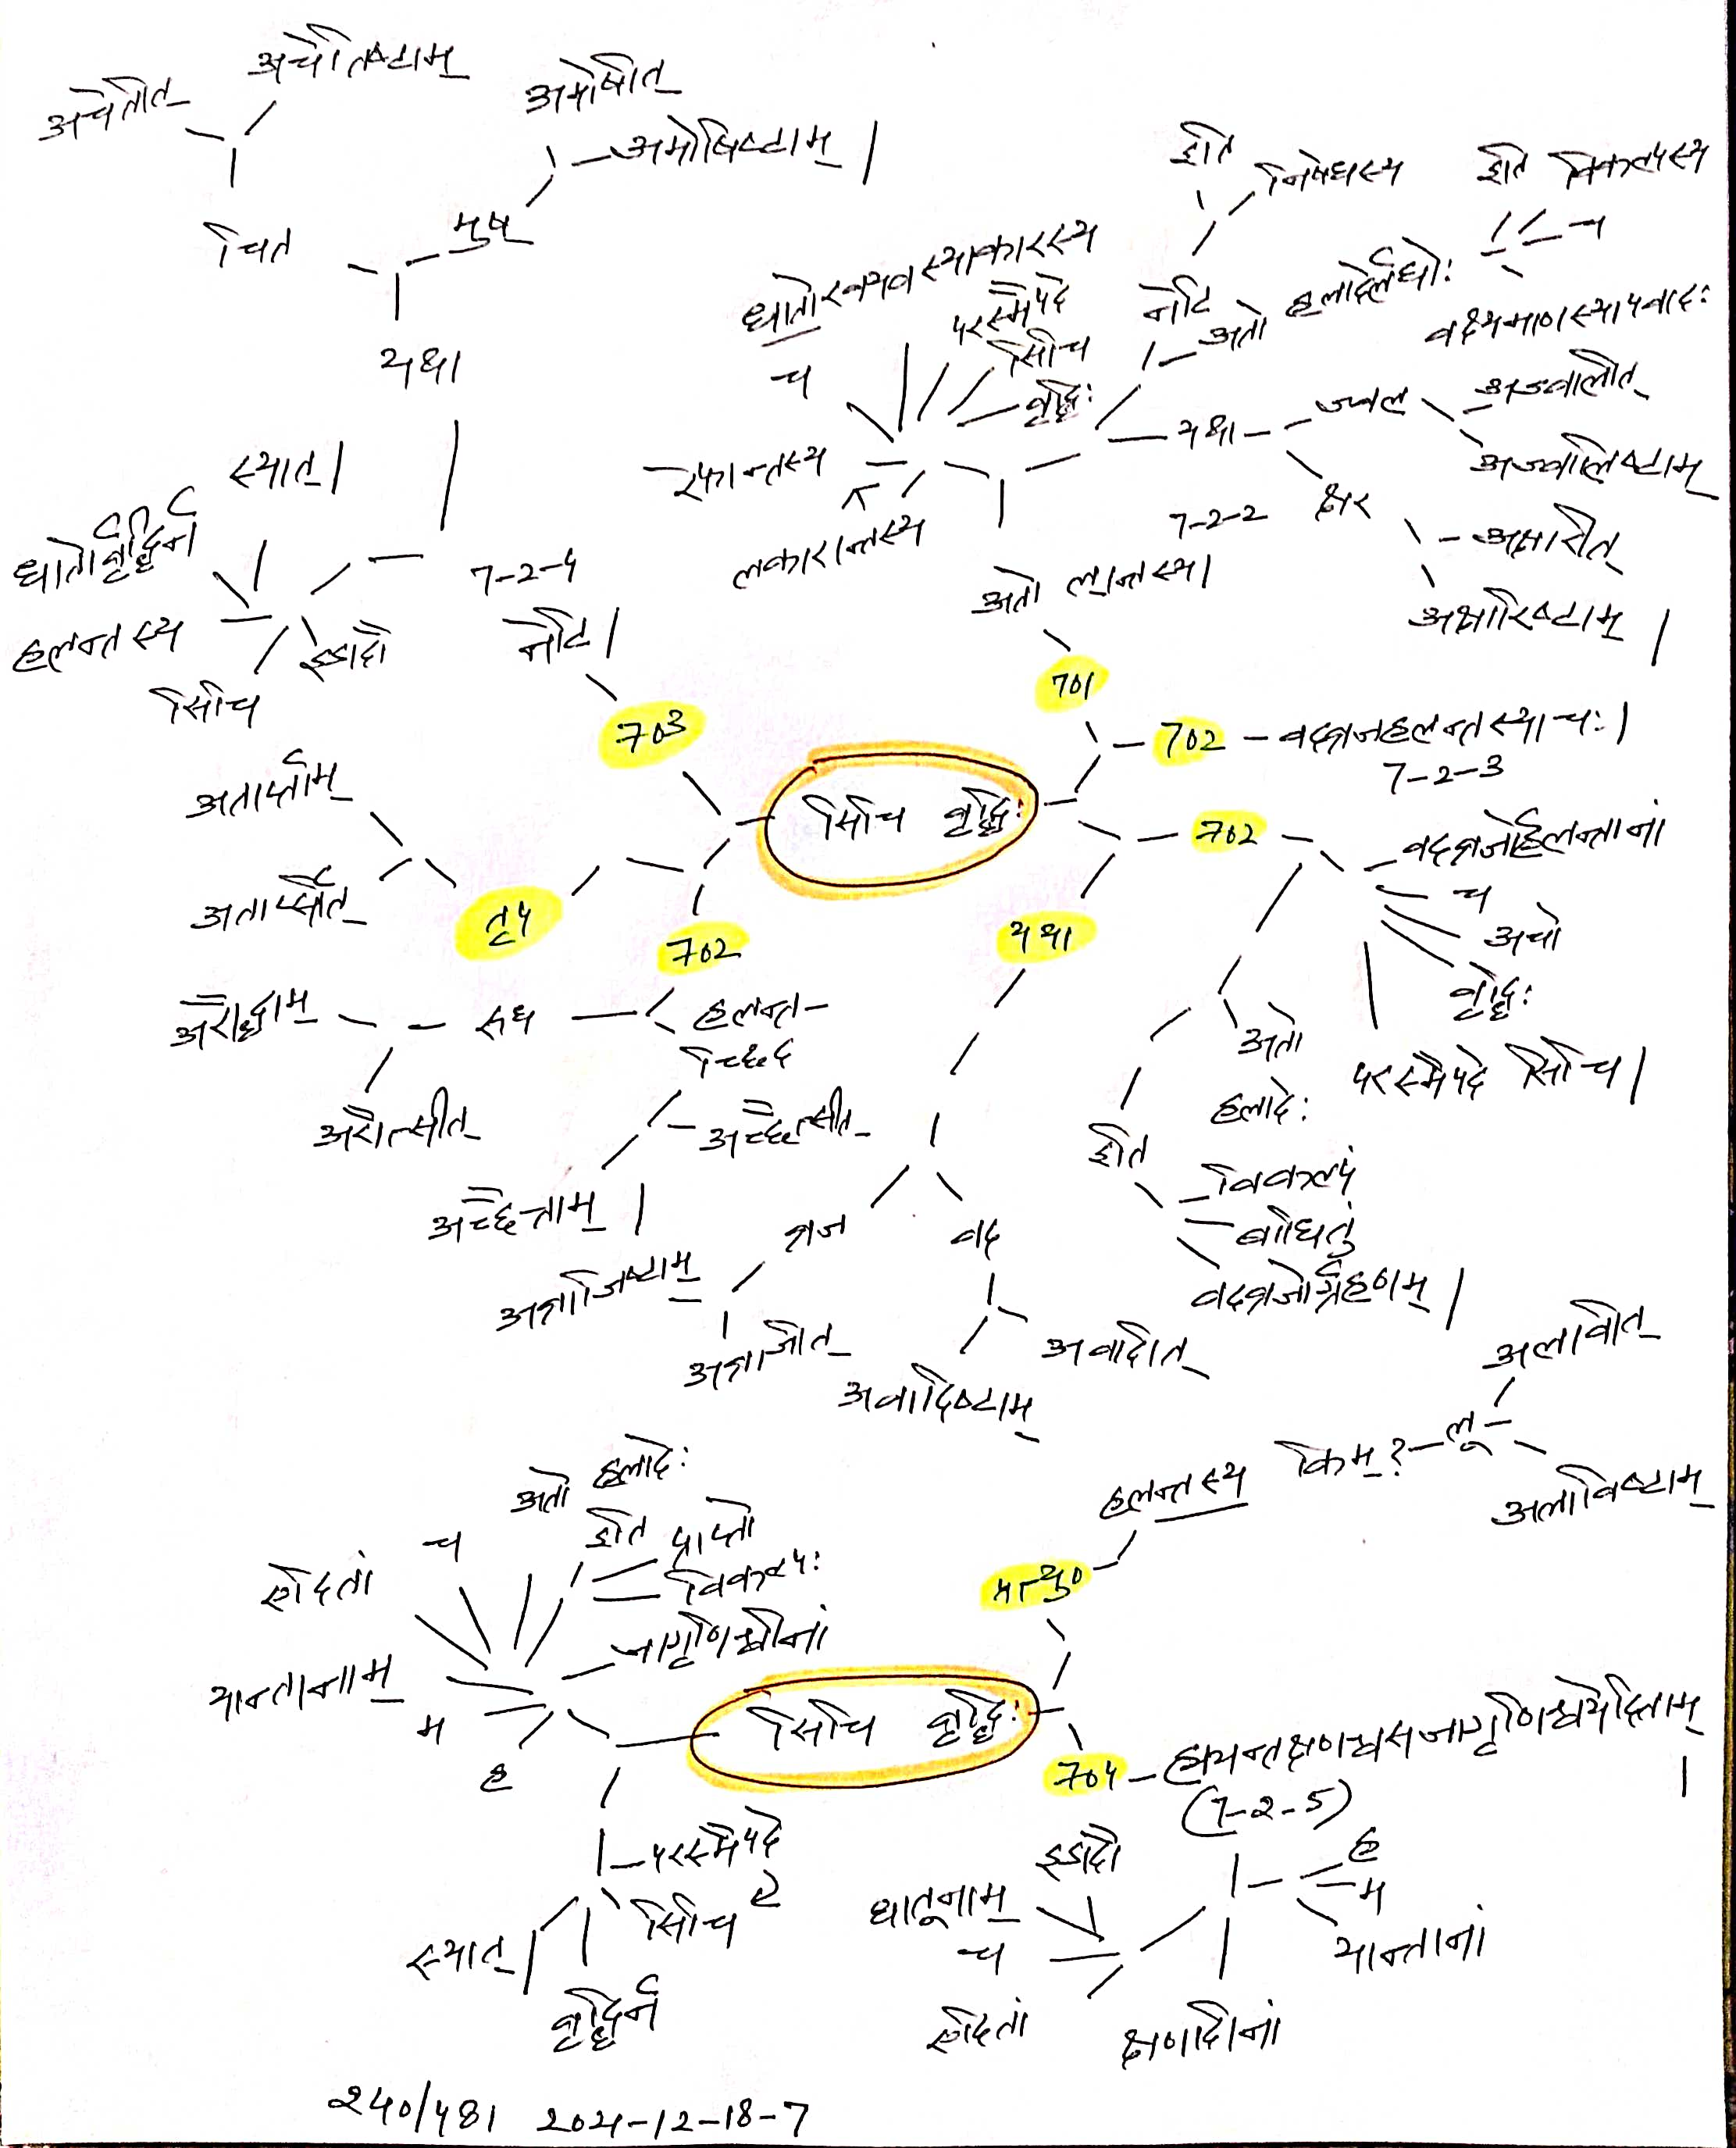 अचेतीत्
अचेतिष्टाम्
चित
अमोषीत्
अमोषिष्टाम् |
मुष्
यथा
स्यात् |
धातोर्वृद्धिर्न
हलन्तस्य
सिचि
इडादौ
7-2-4
नेटि |
703
धातोरवयवस्याकारस्य
च
परस्मैपदे
सिचि
वृद्धिः
रेफान्तस्य
लकारान्तस्य
इति
निषेधस्य
नेटि
अतो हलादेर्लघोः
इति विकल्पस्य
च
वक्ष्यमाणस्यापवादः
यथा
ज्वल
अज्वालीत्
अज्वालिष्टाम्
क्षर
अक्षारीत्
अक्षारिष्टाम् |
7-2-2
अतो ल्रान्तस्य |
701
702 - वदव्रजहलन्तस्याचः |
7-2-3
सिचि वृद्धिः
702
वदव्रजोर्हलन्तानां
च
अचो
वृद्धिः
परस्मैपदे सिचि |
अतो
हलादेः
इति
विकल्पं
बाधितुं
वदव्रजोर्ग्रहणम् |
यथा
व्रज
अव्राजिष्टाम्
अव्राजीत्
वद
अवादीत्
अवादिष्टाम्
तृप
अतार्प्ताम्
अतार्प्सीत्
702
हलन्त-
रुध
अरौद्धाम्
अरौत्सीत्
च्छिद
अच्छैत्सीत्
अच्छैत्ताम् |
हलन्तस्य किम्? - लू
अलावीत्
अलाविष्टाम्
प्रत्यु०
सिचि वृद्धिः
704 - ह्म्यन्तक्षणश्वसजागृणिश्व्येदिताम् |
(7-2-5)
ह
म
यान्तानां
क्षणादीनां
एदितां
च
धातूनाम्
इडादौ
अतो हलादेः
इति प्राप्तो
विकल्पः
जागृणिश्वीनां
च
एदितां
यान्तानाम्
म
ह
परस्मैपदे
सिचि
वृद्धिर्न
स्यात् |
240/481 2021-12-18-7